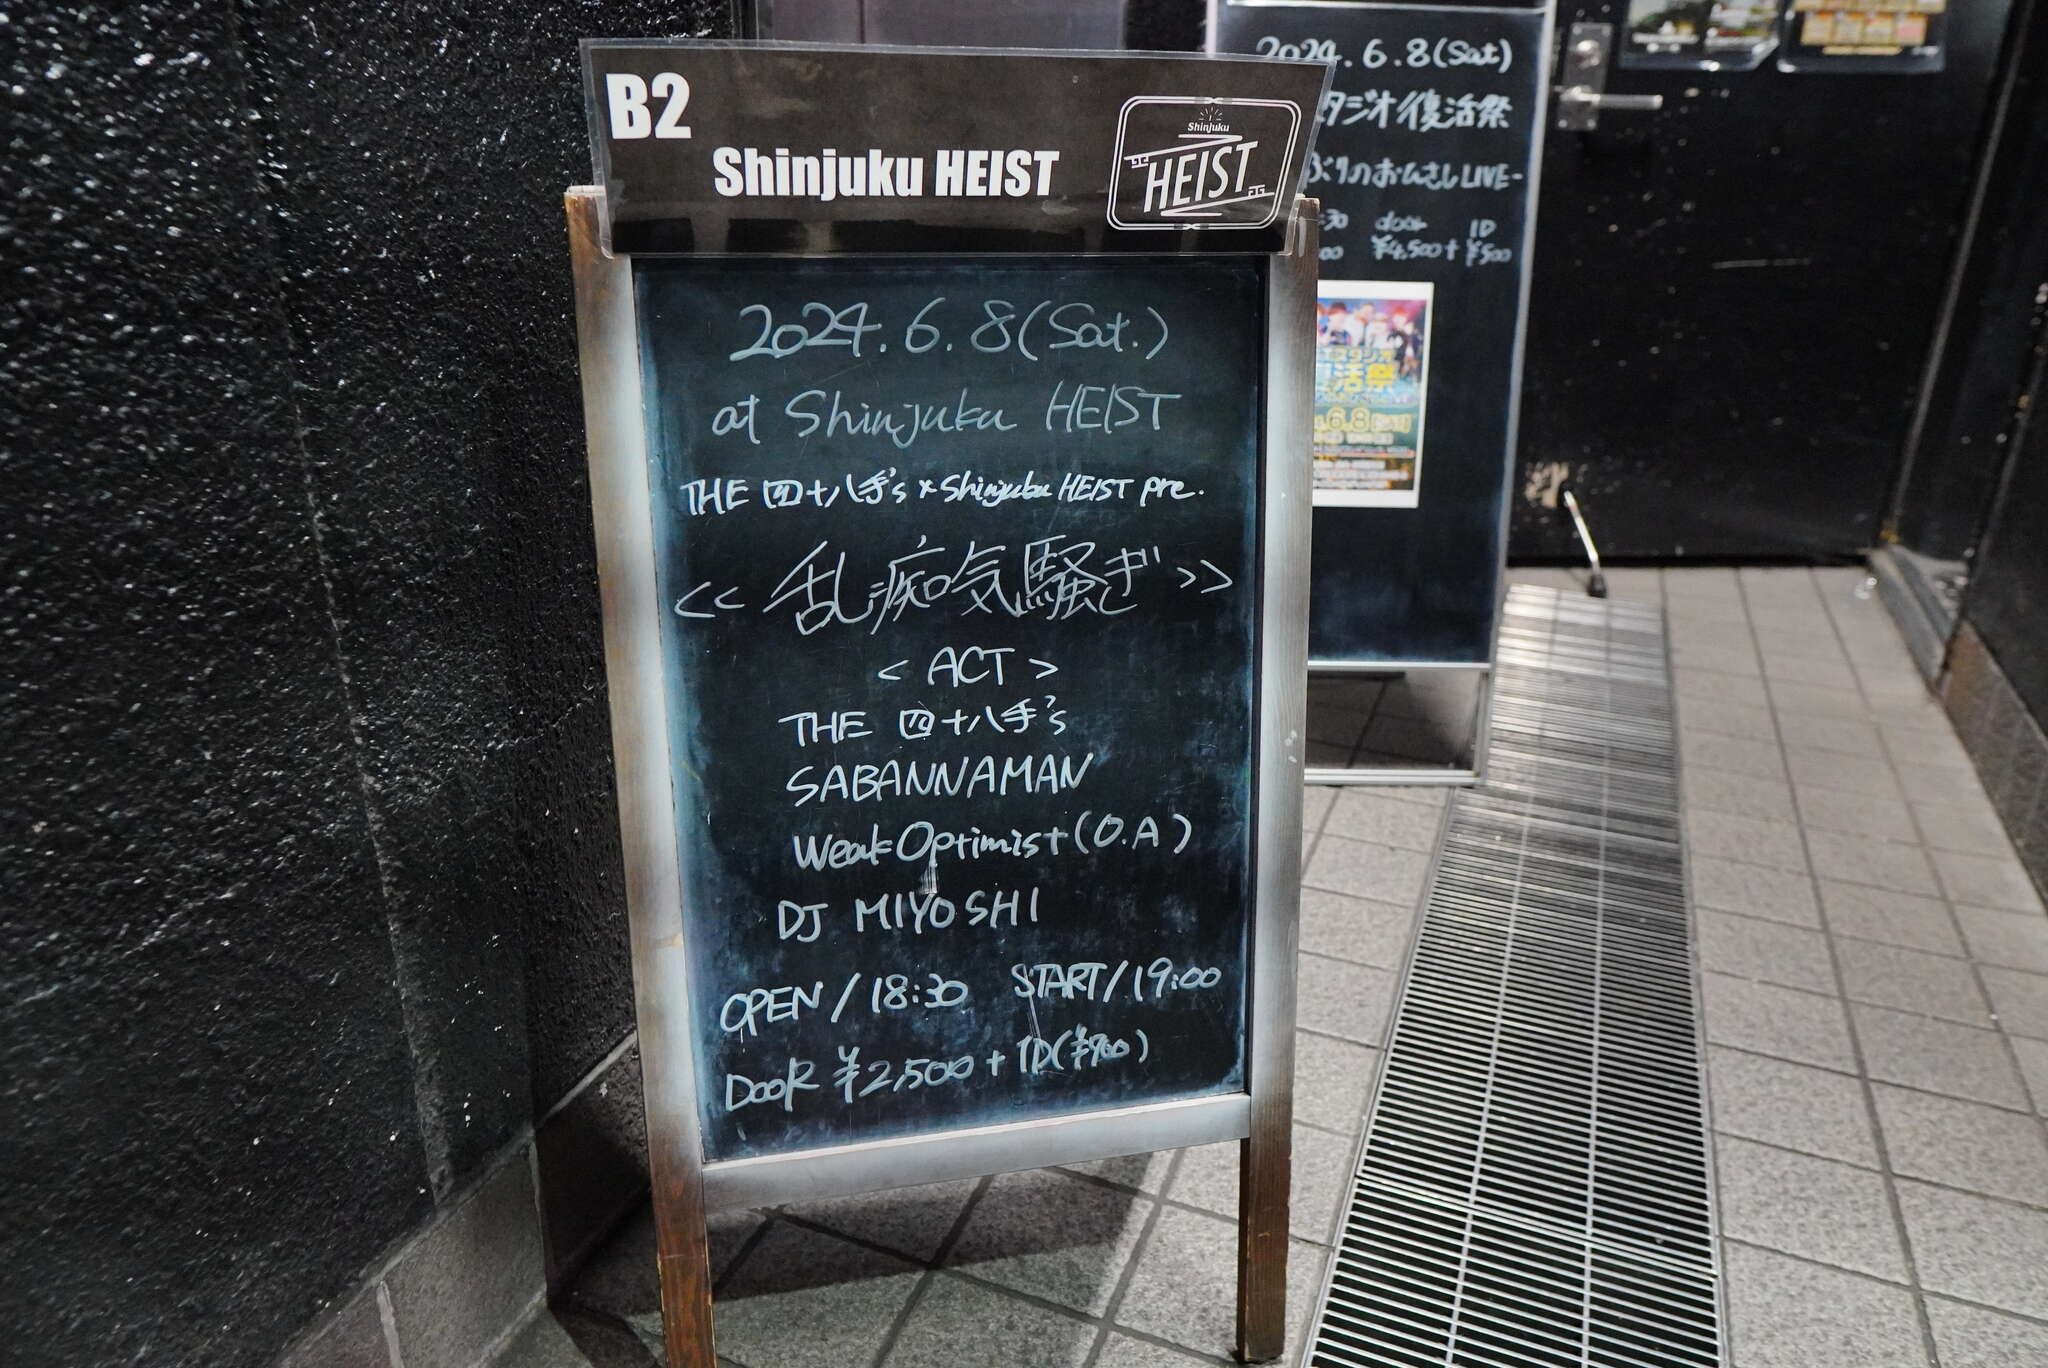 B2
Shinjuku HEIST
Shinjuku
HEIST
2024.6.8(Sat.)
at Shinjuku HEIST
THE 四十八手's × Shinjuku HEIST pre.
<< 乱痴気騒ぎ >>
< ACT >
THE 四十八手's
SABANNAMAN
Weak Optimist (O.A)
DJ MIYOSHI
OPEN / 18:30 START / 19:00
DooR ¥2,500 + 1D(¥700)
2024.6.8(Sat)
タジオ復活祭
ぶりのおひさしLIVE-
:30 door 1D
00 ¥4,500+ ¥500
エスタジオ
活祭
6.8